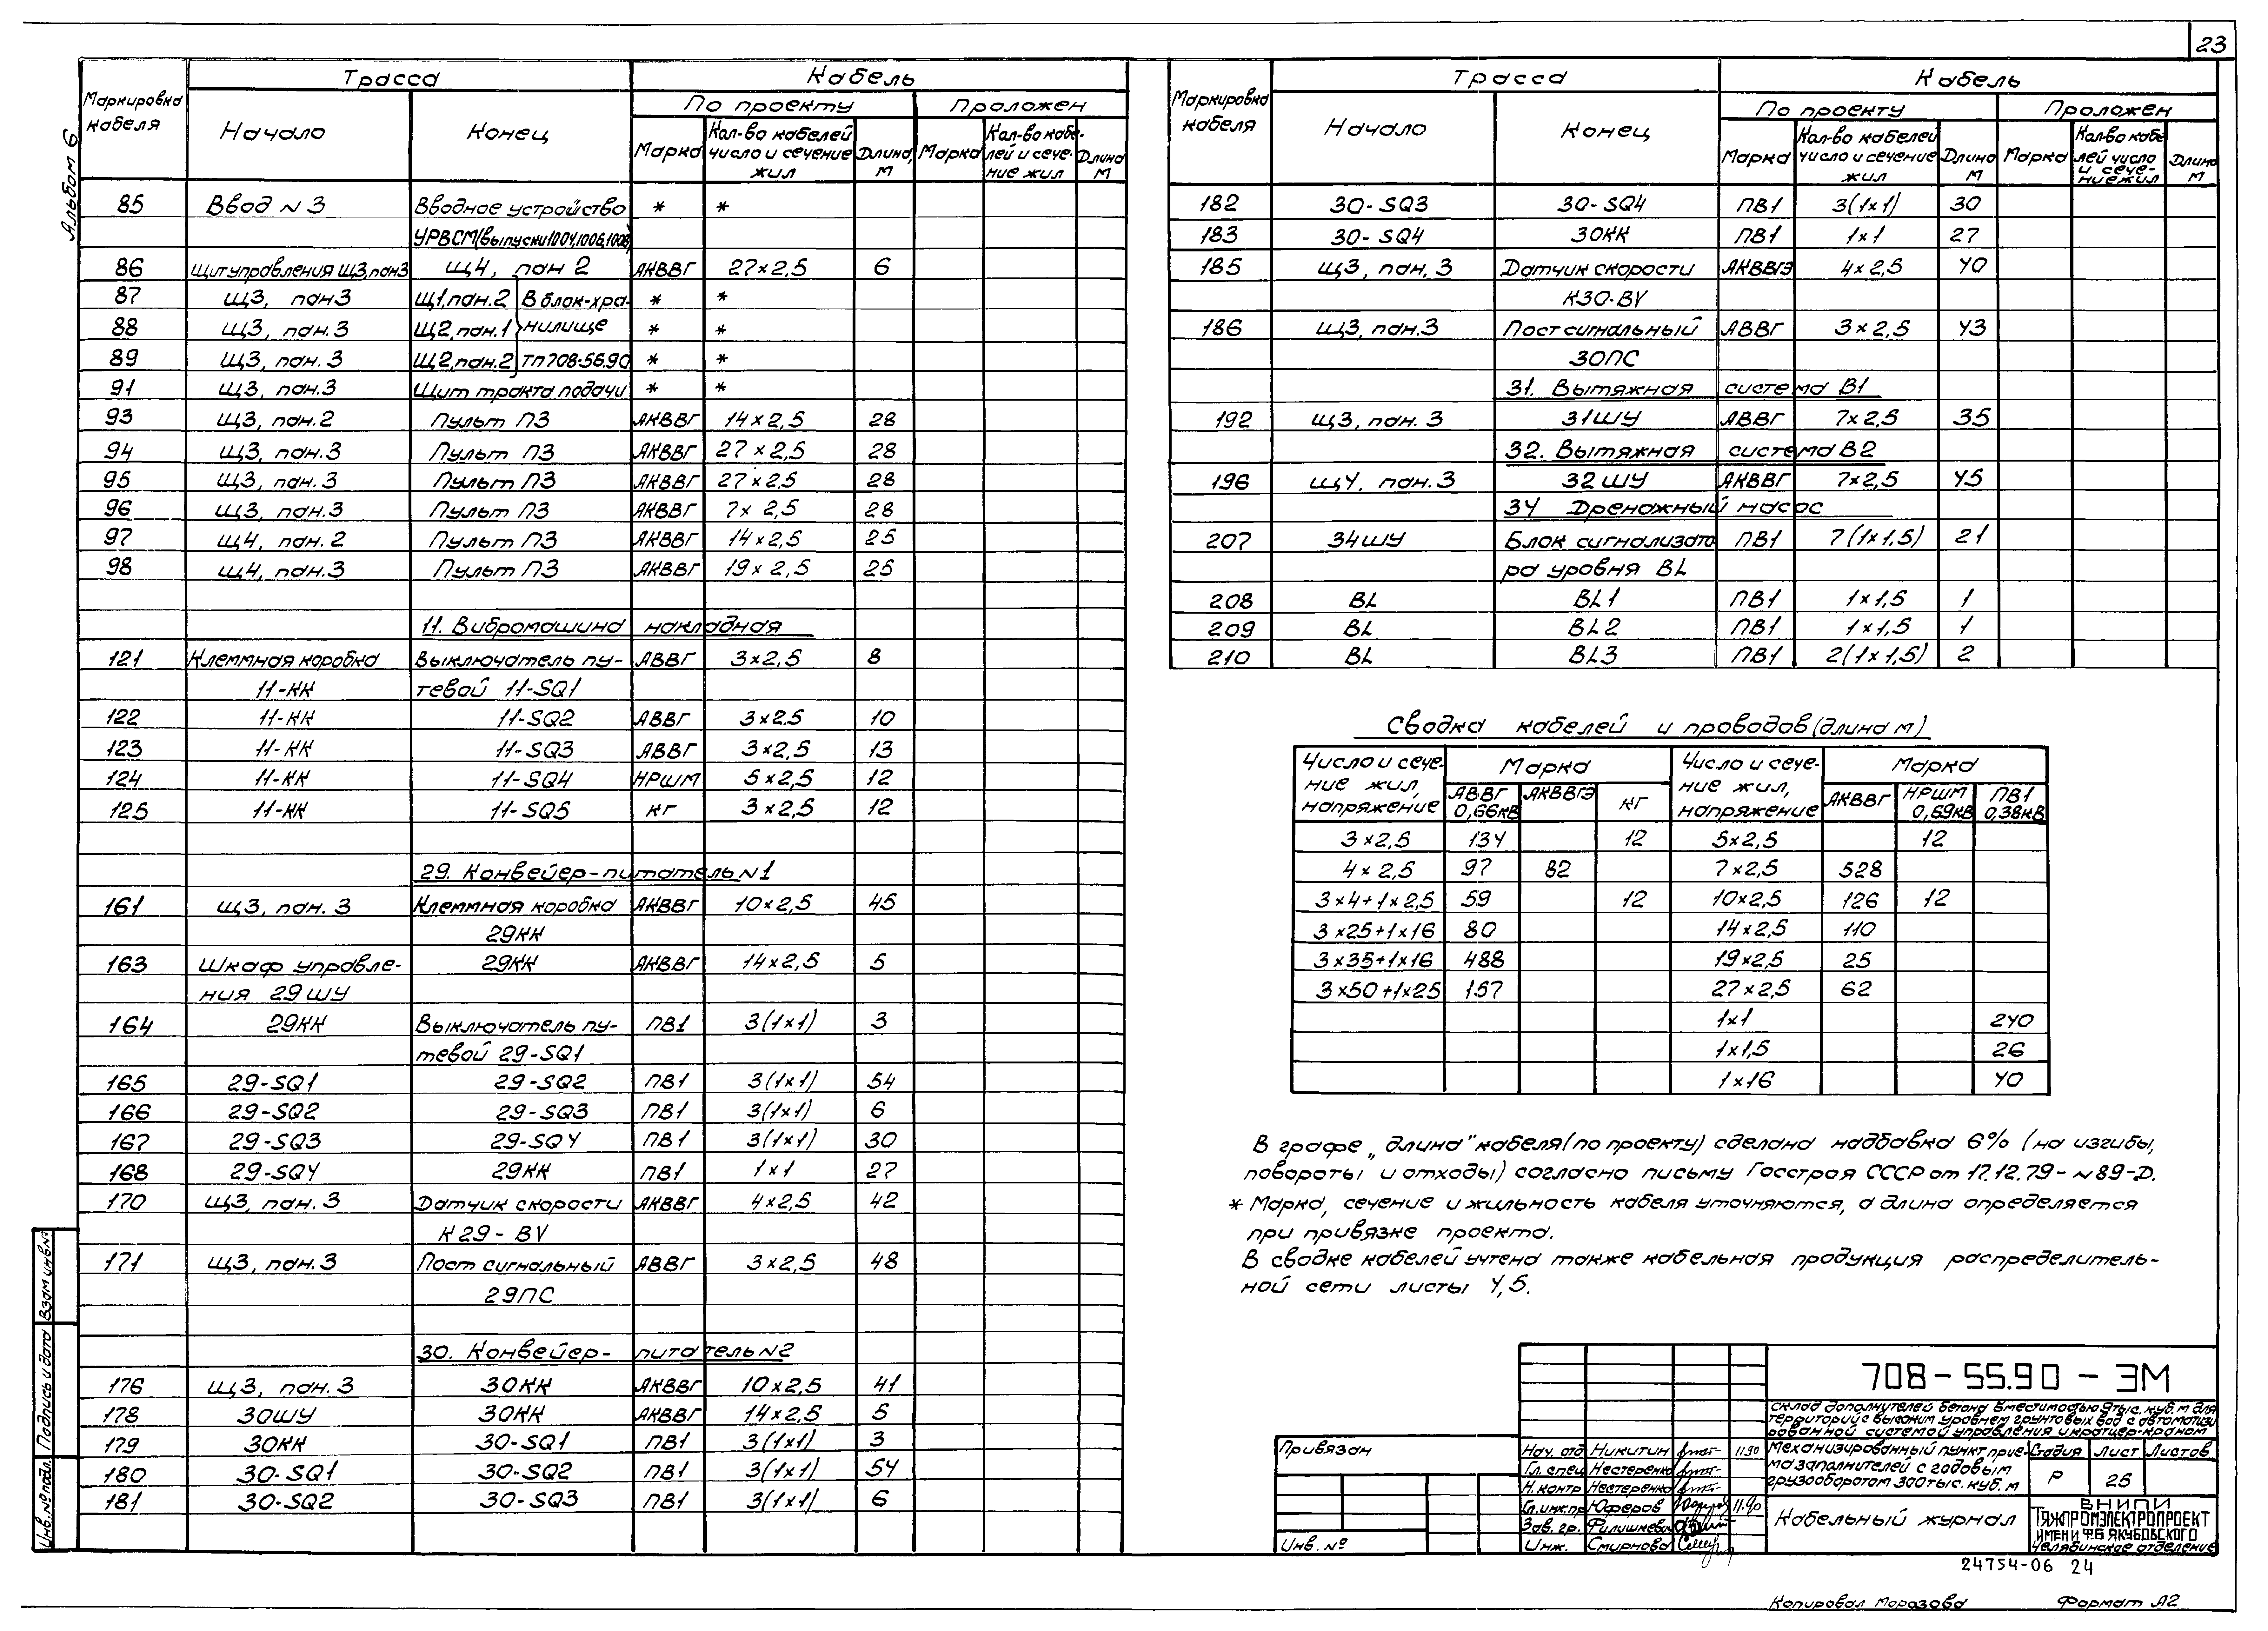 23
Альбом 6
Маркировка кабеля | Трасса | Кабель
Начало | Конец | По проекту | Проложен
Марка | Кол-во кабелей число и сечение жил | Длина, м | Марка | Кол-во кабелей и сечение жил | Длина м
85 Ввод №3 Вводное устройство * *
УРВСМ (выпуски 1004,1006,1008)
86 Щит управления Щ3, пан3 Щ4, пан 2 АКВВГ 27×2,5 6
87 Щ3, пан3 Щ1, пан.2 В блок-хра- * *
88 Щ3, пан.3 Щ2, пан.1 нилище * *
89 Щ3, пан.3 Щ2, пан.2 ТП708-56.90 * *
91 Щ3, пан.3 Щит тракта подачи * *
93 Щ3, пан.2 Пульт П3 АКВВГ 14×2,5 28
94 Щ3, пан.3 Пульт П3 АКВВГ 27×2,5 28
95 Щ3, пан.3 Пульт П3 АКВВГ 27×2,5 28
96 Щ3, пан.3 Пульт П3 АКВВГ 7×2,5 28
97 Щ4, пан.2 Пульт П3 АКВВГ 14×2,5 25
98 Щ4, пан.3 Пульт П3 АКВВГ 19×2,5 25
11. Вибромашина накладная
121 Клеммная коробка Выключатель пу- АВВГ 3×2,5 8
11-КК тевой 11-SQ1
122 11-КК 11-SQ2 АВВГ 3×2,5 10
123 11-КК 11-SQ3 АВВГ 3×2,5 13
124 11-КК 11-SQ4 НРШМ 5×2,5 12
125 11-КК 11-SQ5 КГ 3×2,5 12
29. Конвейер-питатель №1
161 Щ3, пан.3 Клеммная коробка АКВВГ 10×2,5 45
29КК
163 Шкаф управле- 29КК АКВВГ 14×2,5 5
ния 29ШУ
164 29КК Выключатель пу- ПВ1 3(1×1) 3
тевой 29-SQ1
165 29-SQ1 29-SQ2 ПВ1 3(1×1) 54
166 29-SQ2 29-SQ3 ПВ1 3(1×1) 6
167 29-SQ3 29-SQ4 ПВ1 3(1×1) 30
168 29-SQ4 29КК ПВ1 1×1 27
170 Щ3, пан.3 Датчик скорости АКВВГ 4×2,5 42
К29-BV
171 Щ3, пан.3 Пост сигнальный АВВГ 3×2,5 48
29ПС
30. Конвейер-питатель №2
176 Щ3, пан.3 30КК АКВВГ 10×2,5 41
178 30ШУ 30КК АКВВГ 14×2,5 5
179 30КК 30-SQ1 ПВ1 3(1×1) 3
180 30-SQ1 30-SQ2 ПВ1 3(1×1) 54
181 30-SQ2 30-SQ3 ПВ1 3(1×1) 6
Маркировка кабеля | Трасса | Кабель
Начало | Конец | По проекту | Проложен
Марка | Кол-во кабелей число и сечение жил | Длина м | Марка | Кол-во кабелей число и сечение жил | Длина м
182 30-SQ3 30-SQ4 ПВ1 3(1×1) 30
183 30-SQ4 30КК ПВ1 1×1 27
185 Щ3, пан,3 Датчик скорости АКВВГЭ 4×2,5 40
К30-BV
186 Щ3, пан.3 Пост сигнальный АВВГ 3×2,5 43
30ПС
31. Вытяжная система В1
192 Щ3, пан.3 31ШУ АВВГ 7×2,5 35
32. Вытяжная система В2
196 Щ4, пан.3 32ШУ АКВВГ 7×2,5 45
34 Дренажный насос
207 34ШУ Блок сигнализато- ПВ1 7(1×1,5) 21
ра уровня BL
208 BL BL1 ПВ1 1×1,5 1
209 BL BL2 ПВ1 1×1,5 1
210 BL BL3 ПВ1 2(1×1,5) 2
Сводка кабелей и проводов (длина м)
Число и сече- ние жил, напряжение | Марка | Число и сече- ние жил, напряжение | Марка
АВВГ 0,66кВ | АКВВГЭ | КГ | АКВВГ | НРШМ 0,69кВ | ПВ1 0,38кВ
3×2,5 134 12 5×2,5 12
4×2,5 97 82 7×2,5 528
3×4+1×2,5 59 12 10×2,5 126 12
3×25+1×16 80 14×2,5 110
3×35+1×16 488 19×2,5 25
3×50+1×25 157 27×2,5 62
1×1 240
1×1,5 26
1×16 40
В графе „длина" кабеля (по проекту) сделана надбавка 6% (на изгибы,
повороты и отходы) согласно письму Госстроя СССР от 17.12.79- №89-Д.
* Марка, сечение и жильность кабеля уточняются, а длина определяется
при привязке проекта.
В сводке кабелей учтена также кабельная продукция распределитель-
ной сети листы 4,5.
708-55.90-ЭМ
Склад заполнителей бетона вместимостью 9тыс. куб. м для
территорий с высоким уровнем грунтовых вод с автоматизи-
рованной системой управления и кратцер-краном
Механизированный пункт прие-
ма заполнителей с годовым
грузооборотом 300тыс. куб. м
Стадия Лист Листов
Р 25
Кабельный журнал
ВНИПИ
ТЯЖПРОМЭЛЕКТРОПРОЕКТ
ИМЕНИ Ф.Б ЯКУБОВСКОГО
Челябинское отделение
Нач. отд Никитин 11.90
Гл. спец Нестеренко
Н. контр Нестеренко
Гл.инж.пр Юферов 11.90
Зав. гр.
Инж. Смирнова
Привязан
Инв. №
Взам инв.№
Подпись и дата
Инв.№ подл.
24754-06 24
Копировал Морозова Формат А2